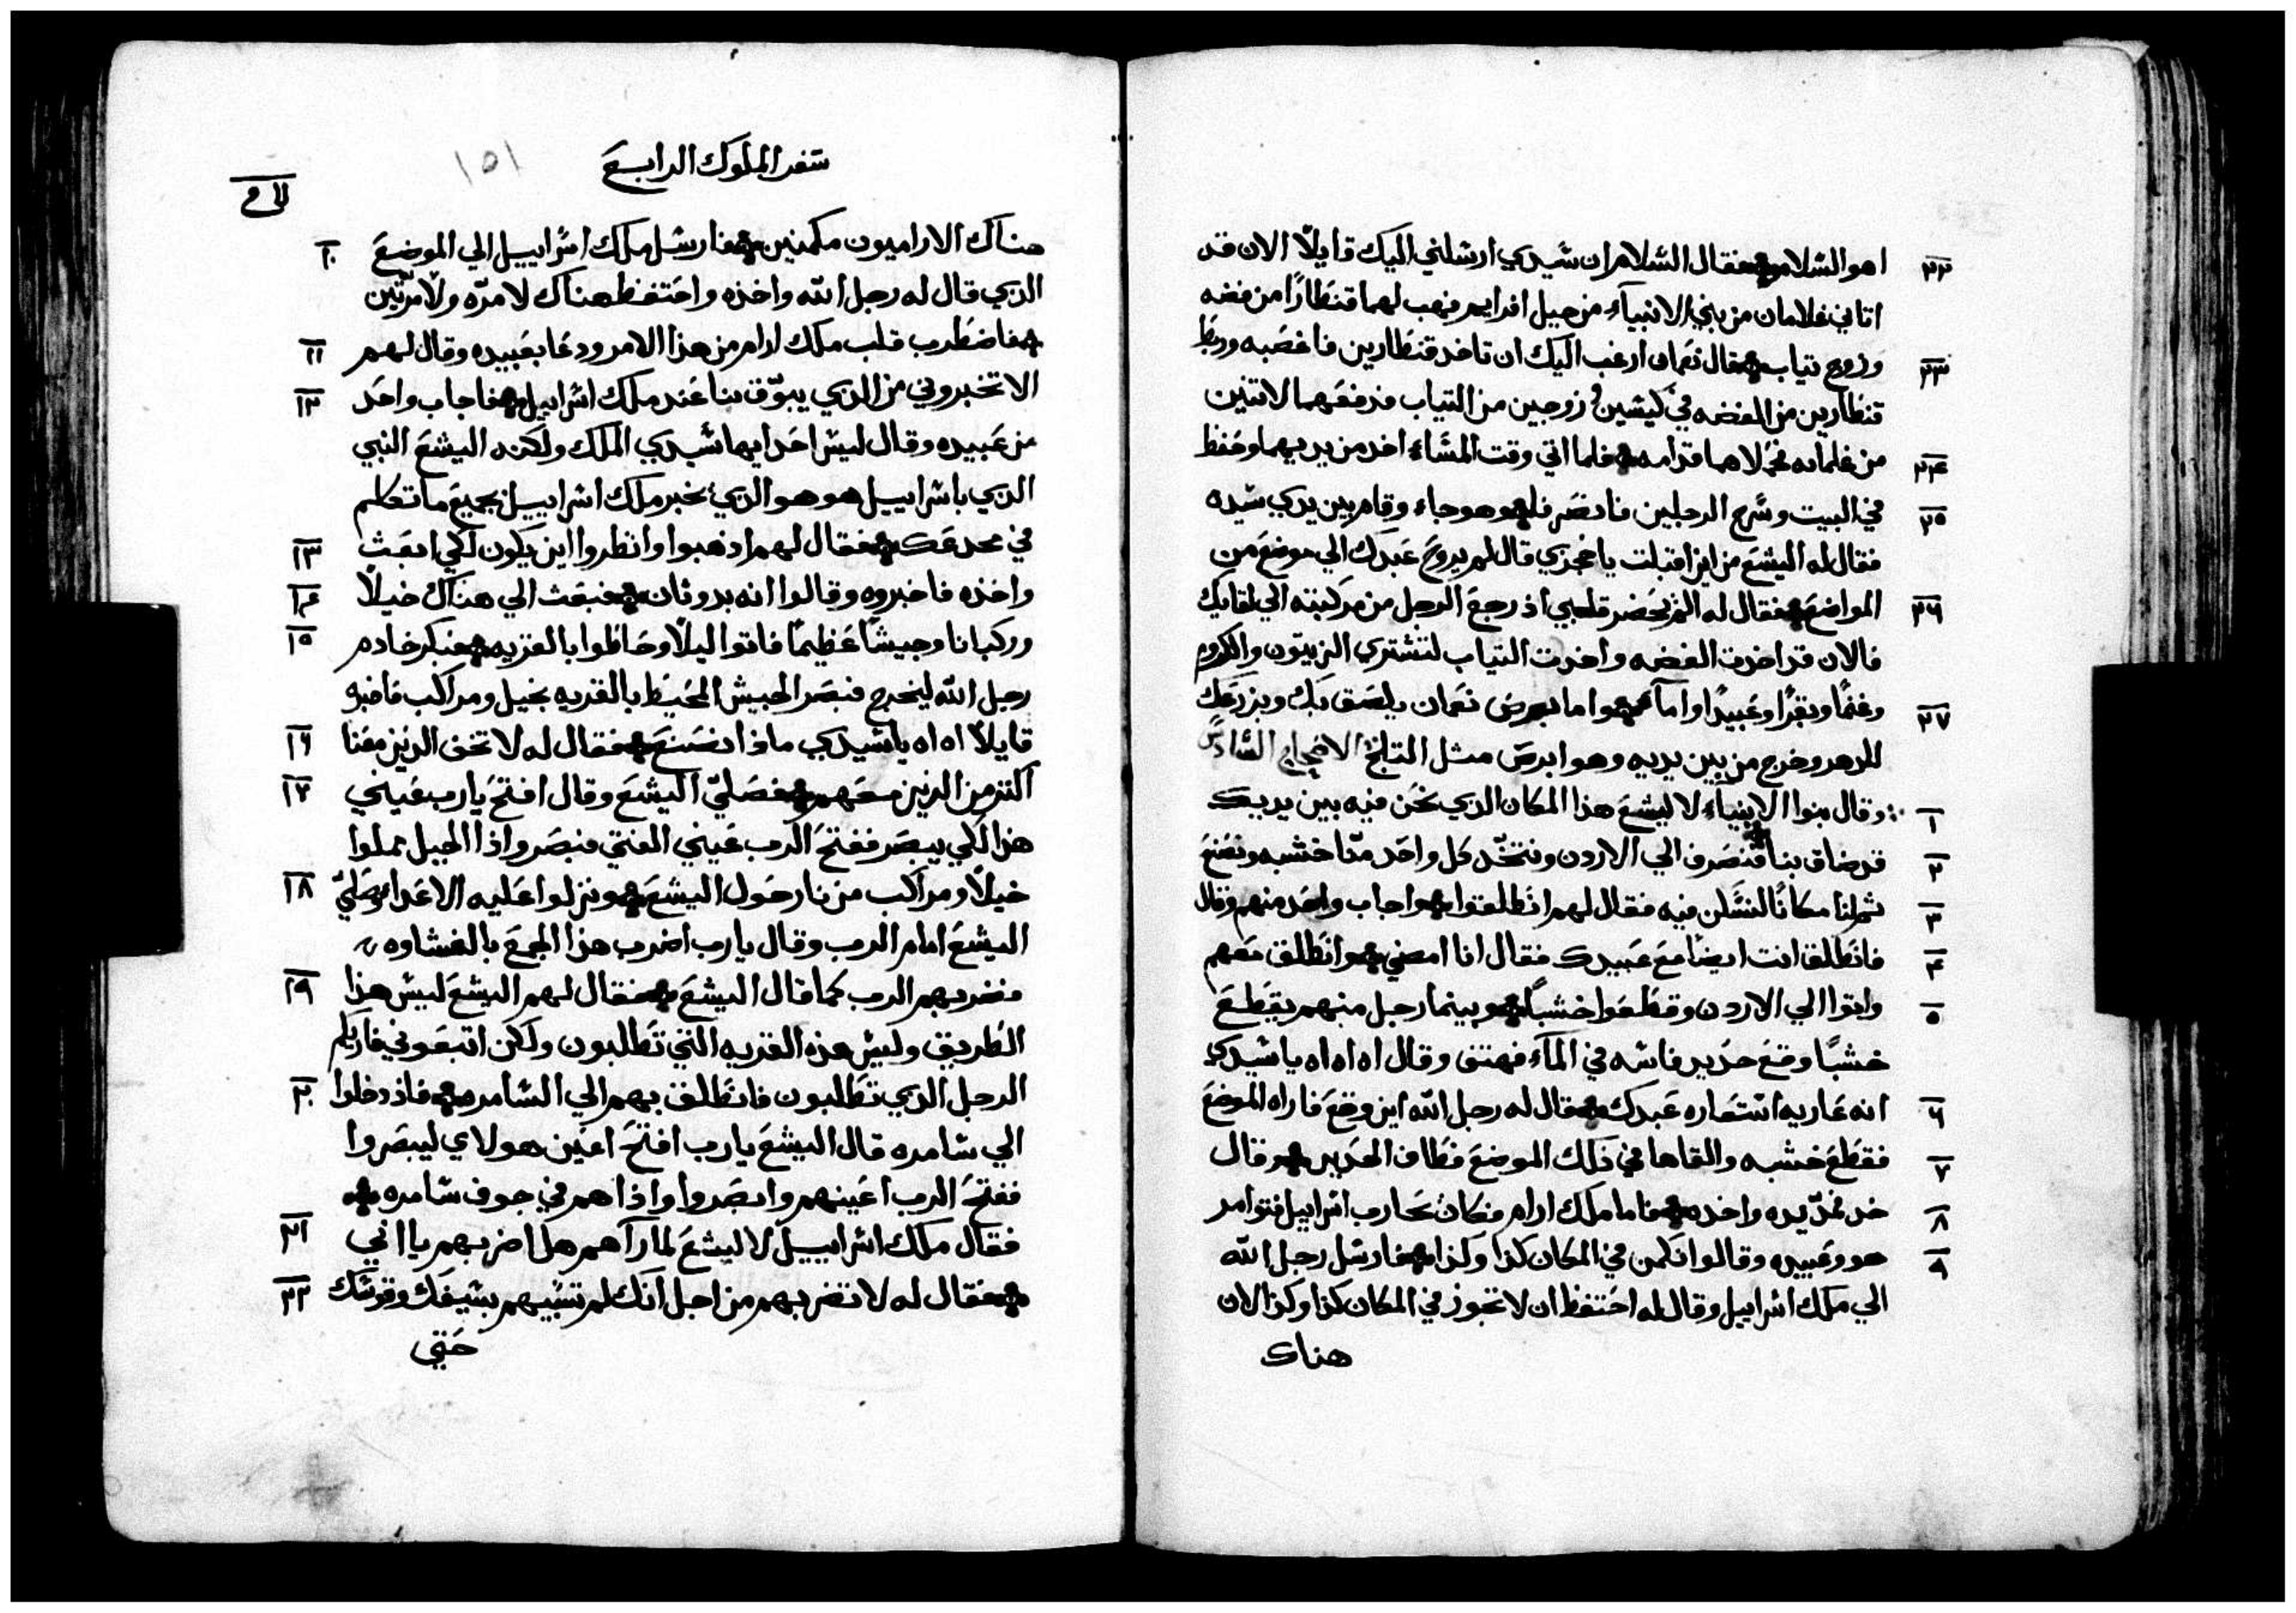 ٢٢ اهو السلام فقال السلام ان سيدي ارسلني اليك قايلًا الان قد
اتاني غلامان من بني الانبياء من جبل افرايم فهب لهما قنطارًا من فضه
٢٣ وزوج تياب فقال نعمان ارغب اليك ان تاخد قنطارين فاغصبه وربط
قنطارين من الفضه في كيسين و زوجين من التياب فدفعهما لاتنين
٢٤ من غلمانه فحملاهما قدامه فلما اتي وقت المساء اخد من يديهما وحفظ
٢٥ في البيت وسرح الرجلين فانصرفا وهو جاء وقام بين يدي سيده
فقال له اليشع من اين اقبلت يا جحزي قال لم يروح عبدك الي موضع من
٢٦ المواضع فقال له الم يحضر قلبي اذ رجع الرجل من مركبته الي لقايك
فالان قد اخدت الفضه واخدت التياب لتشتري الزيتون والكروم
٢٧ وغنمًا وبقرًا وعبيدًا واماء واما برص نعمان يلصق بك وبزرعك
للدهر وخرج من بين يديه وهو ابرص مثل التلج الاصحاح السادس
١ وقال بنوا الانبياء لاليشع هذا المكان الدي نحن فيه بين يديك
٢ قد ضاق بنا فننصرف الي الاردن ونتخد كل واحد منا خشبه ونصنع
٣ ثم لنا مكانًا لنسكن فيه فقال لهم انطلقوا واجاب واحد منهم وقال
٤ فانطلق انت ايضًا مع عبيدك فقال انا امضي وانطلق معهم
٥ واتوا الي الاردن وقطعوا خشبًا وبينما رجل منهم يقطع
خشبًا وقع حديد فاسه في الماء فهتف وقال اه اه اه يا سيدي
٦ انه عاريه استعاره عبدك فقال له رجل الله اين وقع فاراه الموضع
٧ فقطع خشبه والقاها في ذلك الموضع فطاف الحديد وقال
٨ خد فمد يده واخده فاما ملك ارام فكان يحارب اسراييل فتوامر
٩ هو وعبيده وقالوا نكمن في المكان كذا وكذا فارسل رجل الله
الي ملك اسراييل وقال له احتفظ ان لا تجوز في المكان كذا وكذا لان
هناك
سفر الملوك الرابع
١٥١
هناك الاراميون مكمنين فارسل ملك اسراييل الي الموضع ١٠
الدي قال له رجل الله واخذه واحتفظ هناك لا مره ولا مرتين
فاضطرب قلب ملك ارام من هذا الامر ودعا بعبيده وقال لهم ١١
الا تخبروني من الدي يبوق بنا عند ملك اسراييل فاجاب واحد ١٢
من عبيده وقال ليس احد ايها سيدي الملك ولكنه اليشع النبي
الدي باسراييل هو هو الدي يخبر ملك اسراييل بجميع ما تتكلم
في مخدعك فقال لهم اذهبوا وانظروا اين يكون لكي ابعث ١٣
واخذه فاخبروه وقالوا انه بدوثان فبعث الي هناك خيلًا ١٤
وركبانا وجيشًا عظيمًا فاتوا ليلًا وحاطوا بالقريه فبكر خادم ١٥
رجل الله ليخرج فبصر الجيش المحيط بالقريه بخيل ومراكب فاخبره
قايلًا اه اه يا سيدي ماذا نصنع فقال له لا تخف الدين معنا ١٦
اكتر من الدين معهم فصلي اليشع وقال افتح يارب عيني ١٧
هذا لكي يبصر ففتح الرب عيني الفتي فبصر واذا الجبل مملوا
خيلًا ومراكب من نار حول اليشع ونزلوا عليه الاعداء وصلي ١٨
اليشع امام الرب وقال يارب اضرب هذا الجمع بالغشاوه
فضربهم الرب كما قال اليشع فقال لهم اليشع ليس هذا ١٩
الطريق وليس هذه القريه التي تطلبون ولكن اتبعوني فاريكم
الرجل الدي تطلبون فانطلق بهم الي السامره فاذ دخلوا ٢٠
الي سامره قال اليشع يارب افتح اعين هولاي ليبصروا
ففتح الرب اعينهم وابصروا واذا هم في جوف سامره
فقال ملك اسراييل لاليشع لما رآهم هل اضربهم يا ابي ٢١
فقال له لا تضربهم من اجل انك لم تسبيهم بسيفك وقوسك ٢٢
حتي